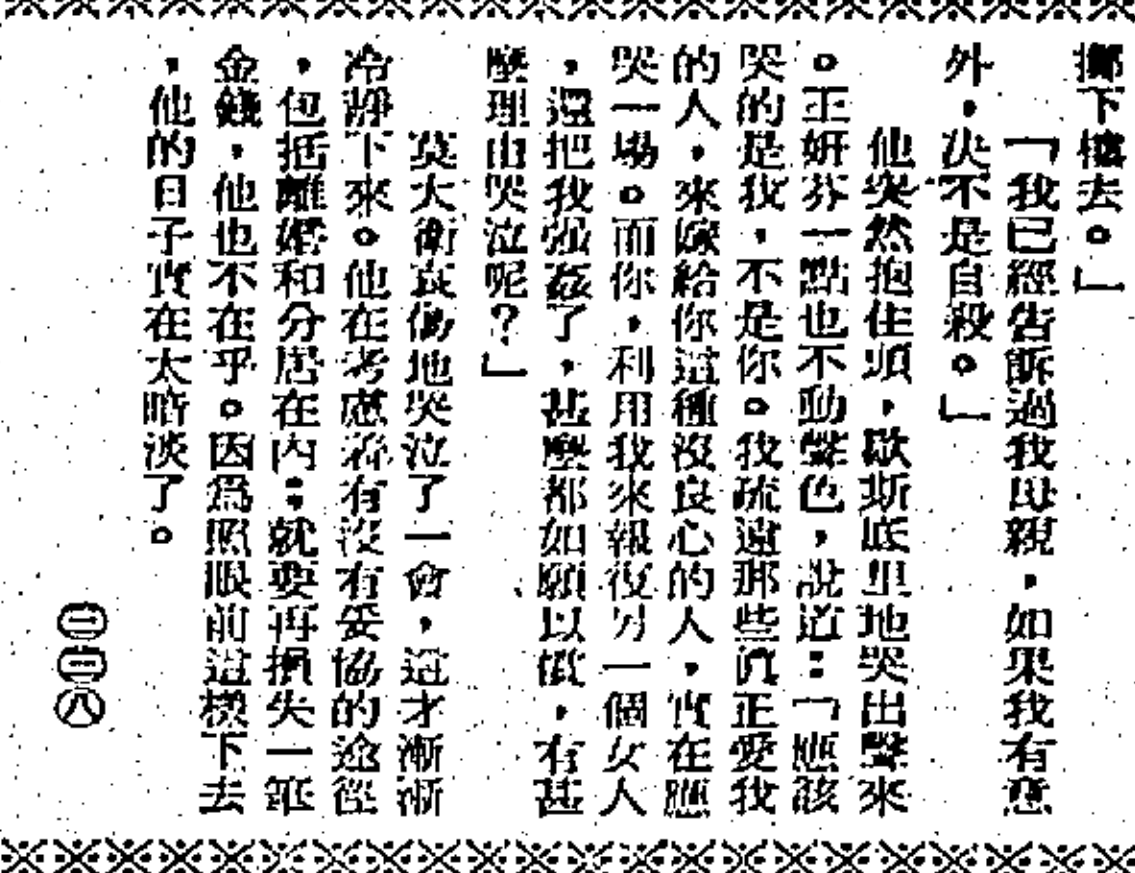 擲下樓去。」
「我已經告訴過我母親，如果我有意
外，决不是自殺。」
他突然抱住頭，歇斯底里地哭出聲來
。王妍芬一點也不動聲色，說道：「應該
哭的是我，不是你。我疏遠那些眞正愛我
的人，來嫁給你這種沒良心的人，實在應
哭一場。而你，利用我來報復另一個女人
，還把我强姦了，甚麼都如願以償，有甚
麼理由哭泣呢？」
莫大衛哀傷地哭泣了一會，這才漸漸
冷靜下來。他在考慮着有沒有妥協的途徑
，包括離婚和分居在內：就要再損失一筆
金錢，他也不在乎。因爲照眼前這樣下去
，他的日子實在太暗淡了。